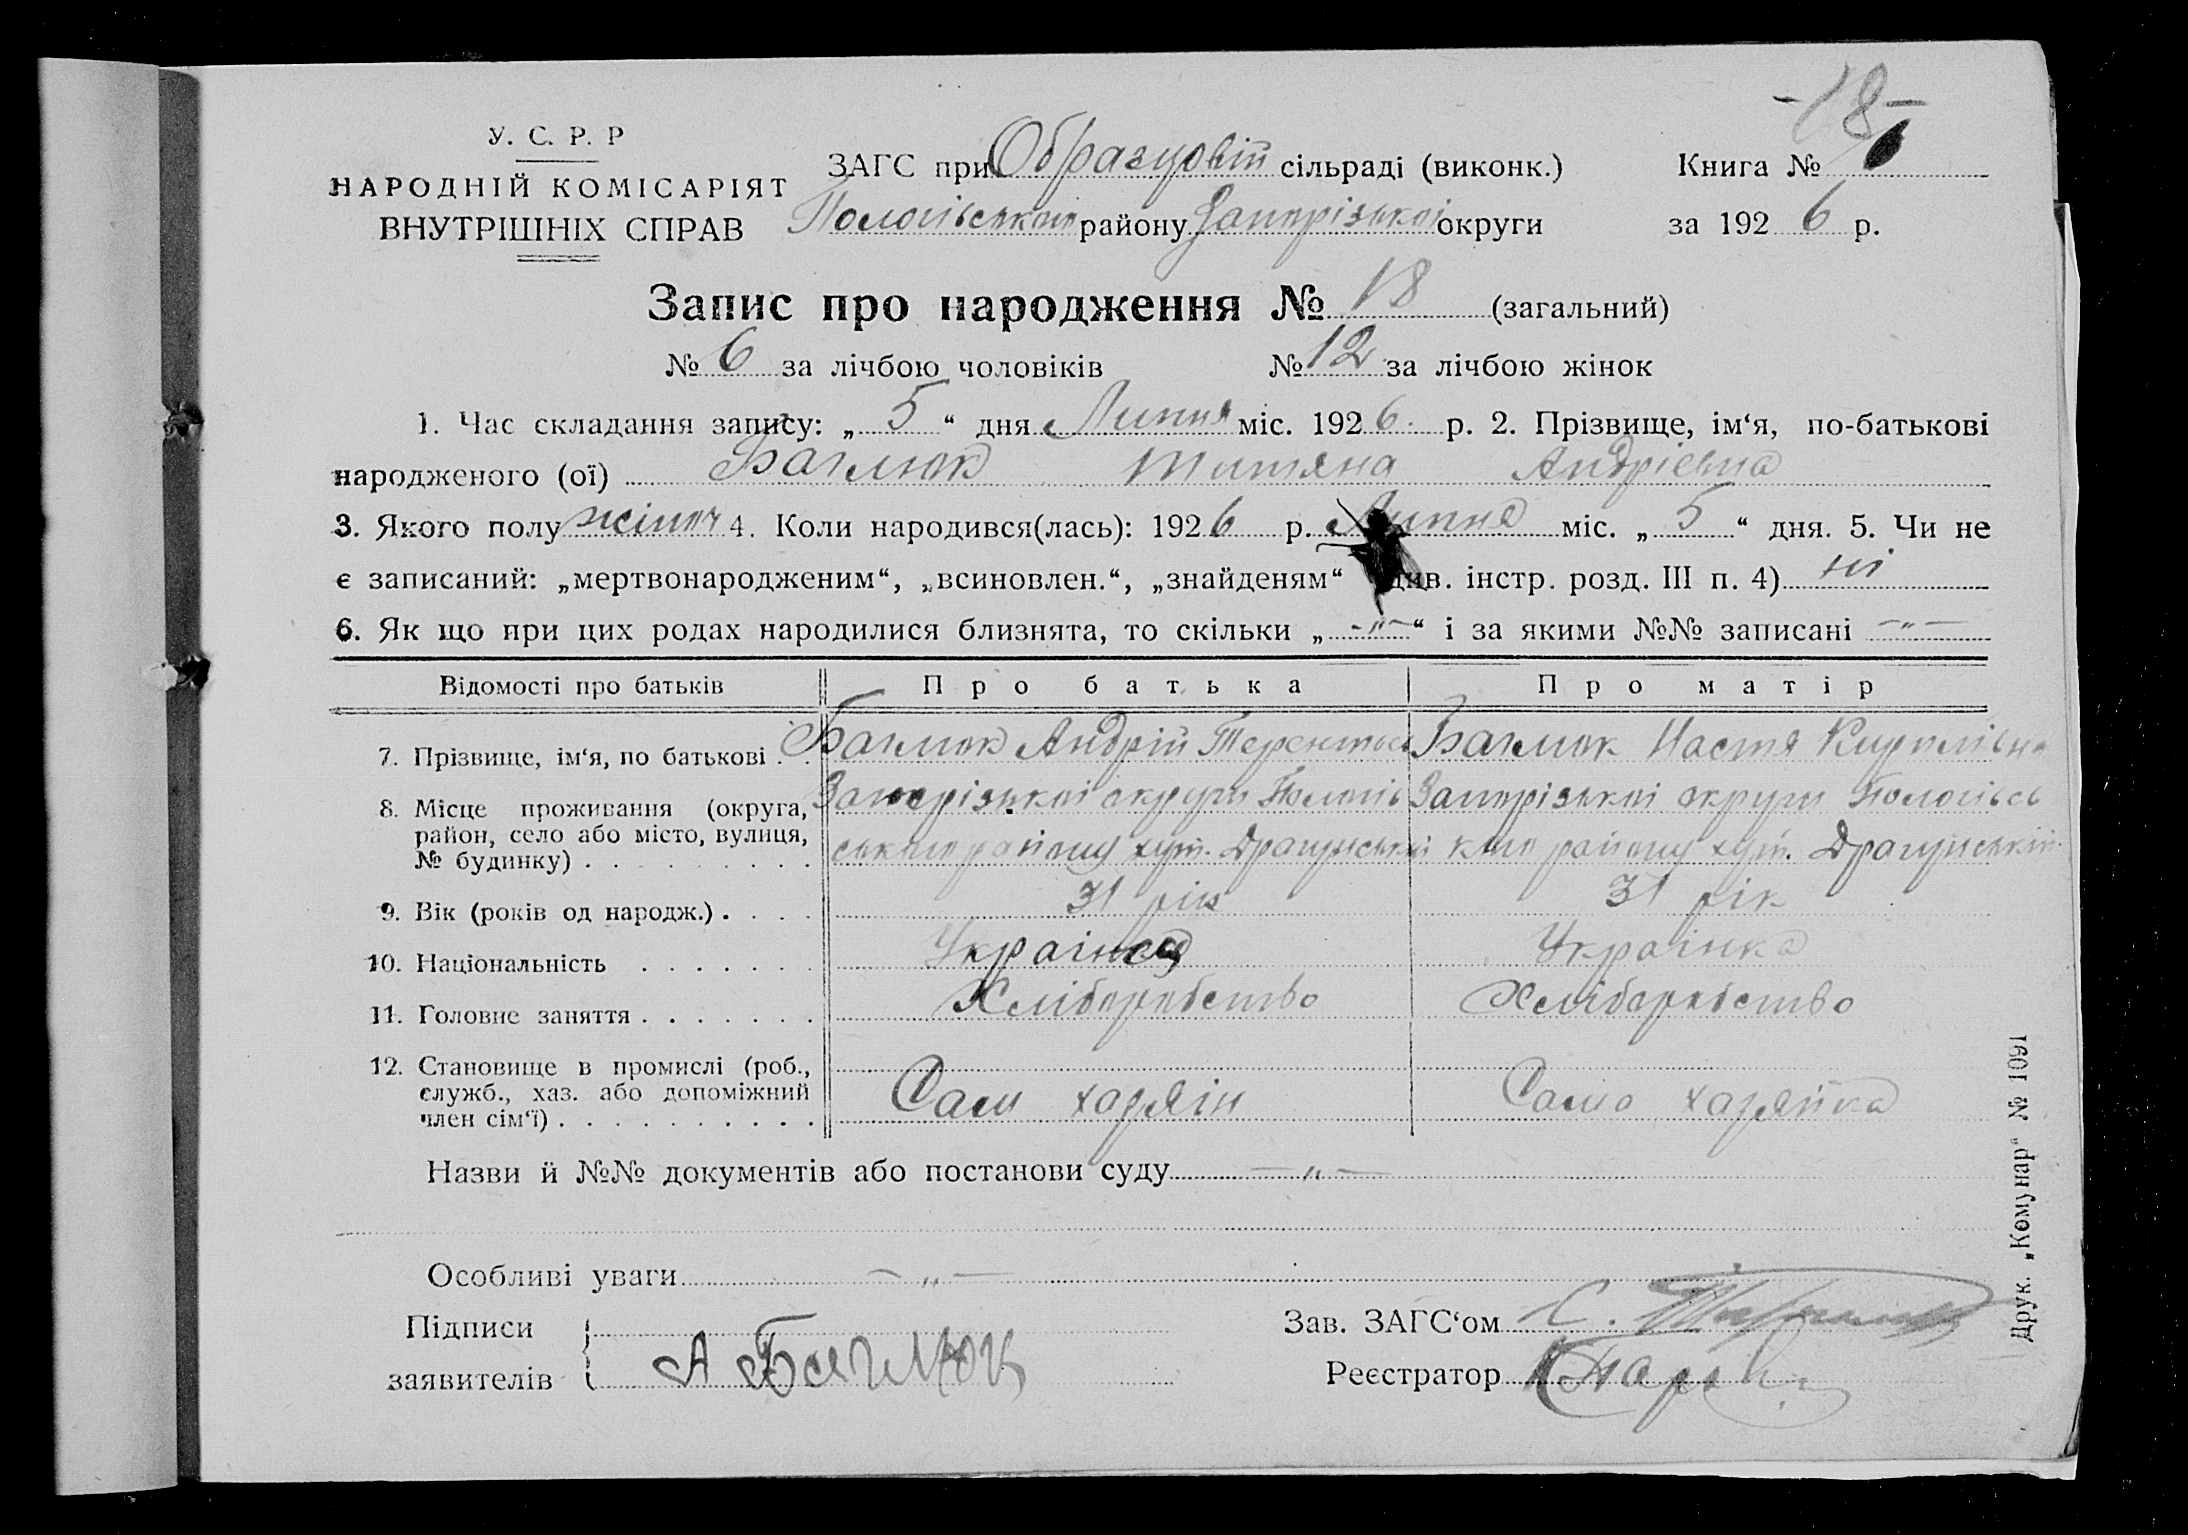 -18-
У. С. Р. Р
НАРОДНІЙ КОМІСАРІЯТ
ВНУТРІШНІХ СПРАВ
ЗАГС при Образцовій сільраді (виконк.) Книга №
Пологівського району Запорізької округи за 1926 р.
Запис про народження № 18 (загальний)
№ 6 за лічбою чоловіків № 12 за лічбою жінок
1. Час складання запису: „ 5 “ дня Липня міс. 1926. р. 2. Прізвище, ім‘я, по-батькові
народженого (ої) Баглюк Титяна Андріевна
3. Якого полу жіноч 4. Коли народився(лась): 1926 р. Липня міс. „ 5 “ дня. 5. Чи не
є записаний: „мертвонародженим“, „всиновлен.“, „знайденям“ (див. інстр. розд. III п. 4) ні
6. Як що при цих родах народилися близнята, то скільки „ -„- “ і за якими №№ записані -„-
Відомості про батьків Про батька Про матір
7. Прізвище, ім‘я, по батькові . . Баглюк Андрій Терентьев Баглюк Настя Кирилівна
8. Місце проживання (округа, Запорізької округи Пологів Запорізької округи Пологівсь
район, село або місто, вулиця, ського району хут. Драгунський кого району хут. Драгунській
№ будинку) . . . . . . . . .
9. Вік (років од народж.) . . . . 31 рік 31 рік
10. Національність . . . . . . . Українец Українка
11. Головне заняття . . . . . . . Хліборобство Хліборобство
12. Становище в промислі (роб.,
служб., хаз. або допоміжний Сам хазяін Сама хазяйка
член сім‘ї) . . . . . . . . . .
Назви й №№ документів або постанови суду -„-
Особливі уваги -„-
Підписи
заявителів А Баглюк
Зав. ЗАГС‘ом С.
Реєстратор
Друк. „Комунар“ № 1091